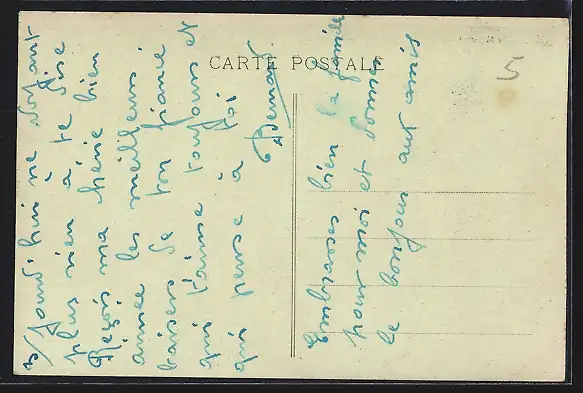 CARTE POSTALE
5
3/ Jourd'hui ne voyant
plus rien à te dire
Reçois ma chérie bien
aimée les meilleurs
baisers de ton fiancé
qui t'aime toujours et
qui pense à toi
Bernard
Embrasses bien la famille
pour moi et donne
le bonjour aux amis